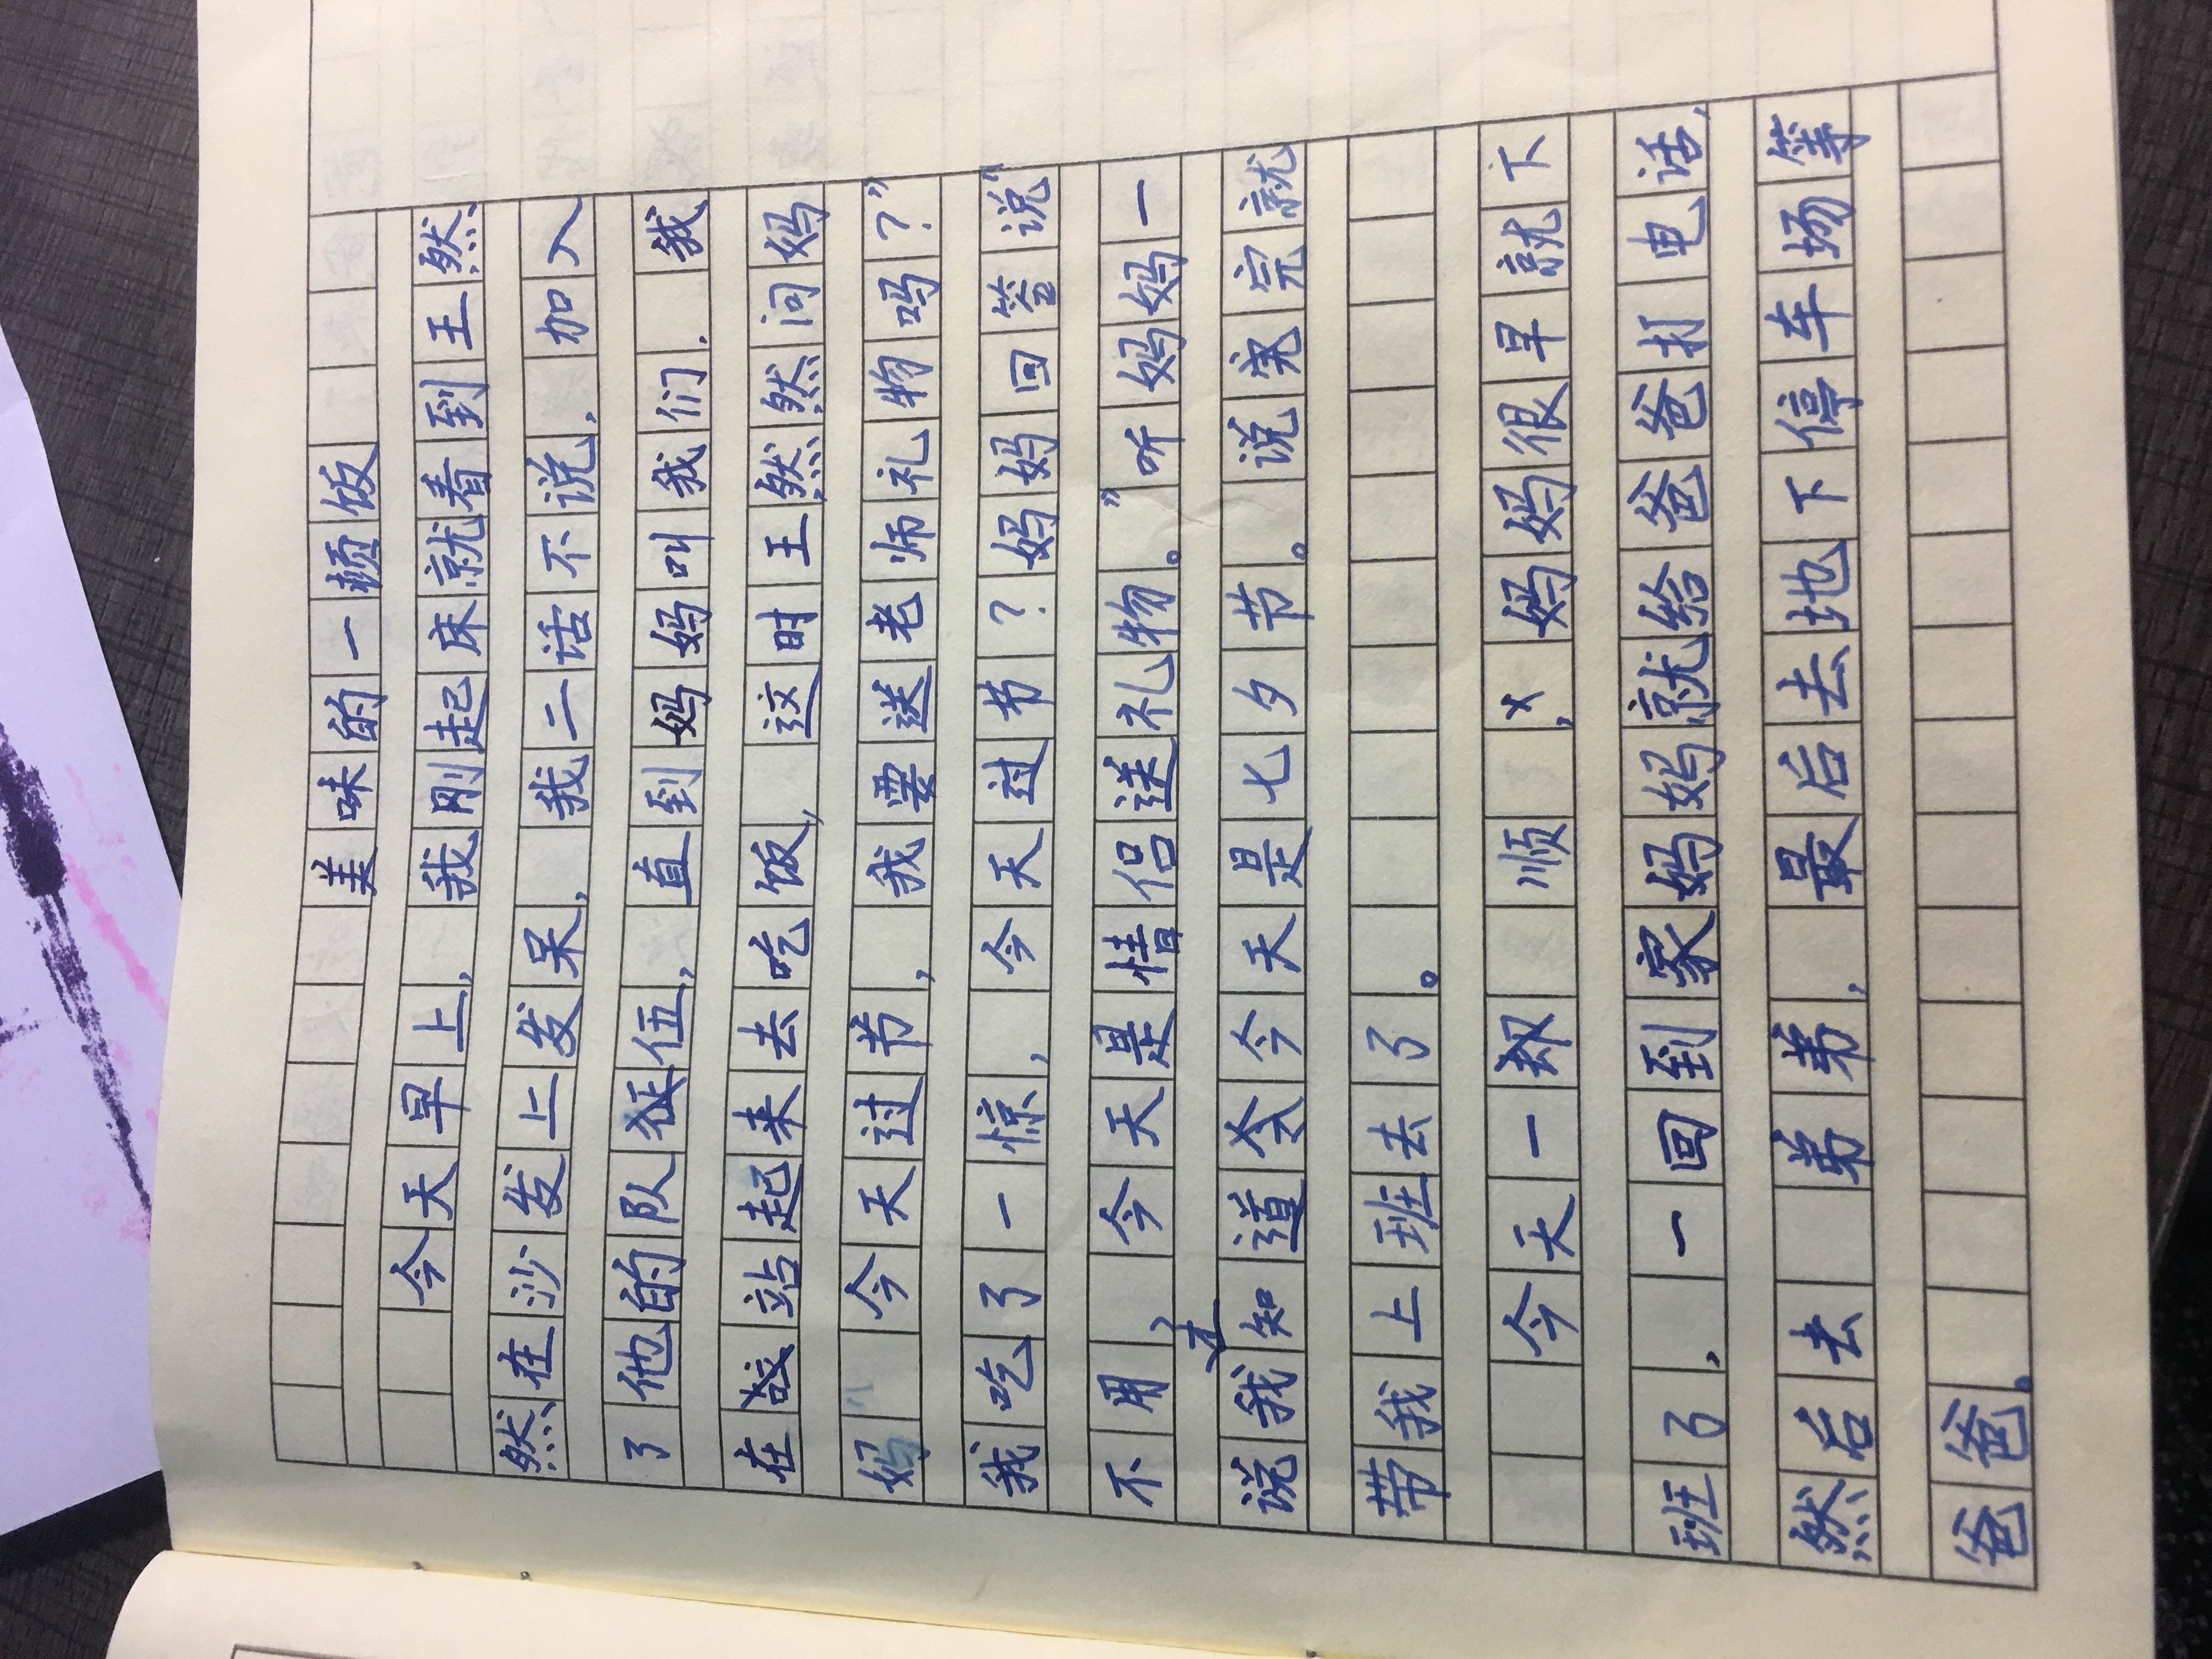 美味的一顿饭
今天早上,我刚起床就看到王然
然在沙发上发呆,我二话不说,加入
了他的队伍,直到妈妈叫我们,我
在站起来去吃饭,这时王然然问妈
妈 今天过节,我要送老师礼物吗?”
我吃了一惊,今天过节?妈妈回答说“
不用,今天是情侣送礼物。”听妈妈一
说我才知道今天是七夕节。说完就
带我上班去了。
今天一切顺 ,妈妈很早就下
班了,一回到家妈妈就给爸爸打电话,
然后去 弟弟,最后去地下停车场等
爸爸。